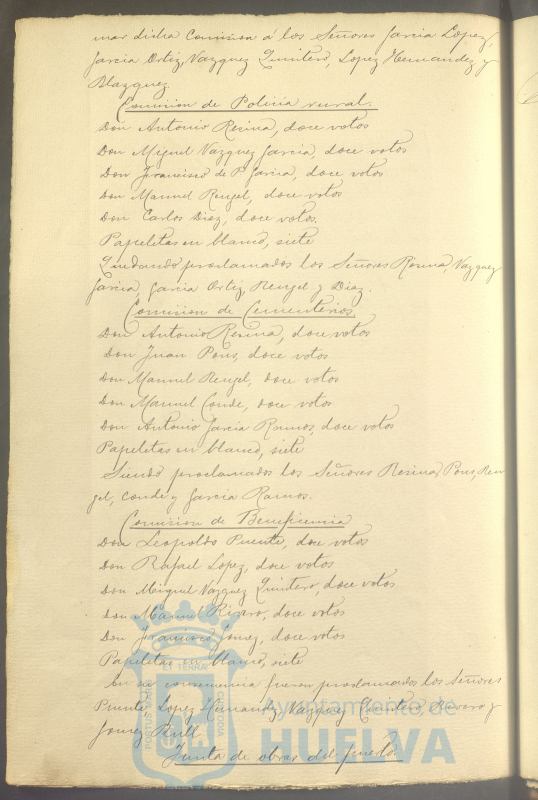 mar dicha Comision á los Señores Garcia Lopez,
Garcia Ortiz, Vazquez Quintero, Lopez Hernandez y
Blazquez.
Comision de Policia rural.
Don Antonio Resina, doce votos
Don Miguel Vazquez Garcia, doce votos
Don Francisco de P. Garcia, doce votos
Don Manuel Rengel, doce votos
Don Carlos Diaz, doce votos.
Papeletas en blanco, siete
Quedando proclamados los Señores Resina, Vazquez
Garcia, Garcia Ortiz, Rengel y Diaz.
Comision de Cementerios
Don Antonio Resina, doce votos
Don Juan Pons, doce votos
Don Manuel Rengel, doce votos
Don Manuel Conde, doce votos
Don Antonio Garcia Ramos, doce votos
Papeletas en blanco, siete
Siendo proclamados los Señores Resina, Pons, Ren
gel, Conde y Garcia Ramos.
Comision de Beneficencia
Don Leopoldo Puente, doce votos
Don Rafael Lopez, doce votos
Don Miguel Vazquez Quintero, doce votos
Don Manuel Rivero, doce votos
Don Francisco Gomez, doce votos
Papeletas en blanco, siete
En su consecuencia fueron proclamados los Señores
Puente, Lopez Hernandez, Vazquez Quintero, Rivero y
Gomez Rull
Junta de obras del puerto.
PORTUS MARIS
ET TERRÆ
CUSTODIA
Ayuntamiento de
HUELVA